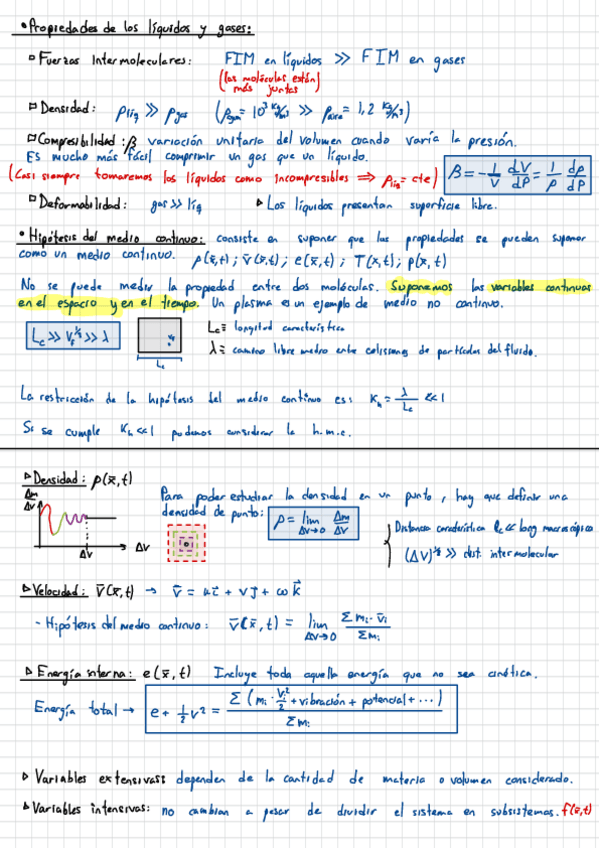 • Propiedades de los líquidos y gases:
▫ Fuerzas Intermoleculares: FIM en líquidos >> FIM en gases
(las moléculas están más juntas)
▫ Densidad: ρlíq >> ρgas (ρagua = 10³ kg/m³ >> ρaire = 1,2 kg/m³)
▫ Compresibilidad: β variación unitaria del volumen cuando varía la presión.
Es mucho más fácil comprimir un gas que un líquido.
(Casi siempre tomaremos los líquidos como incompresibles ⇒ ρliq = cte)
β = - 1/V dV/dP = 1/ρ dρ/dP
▫ Deformabilidad: gas >> líq ▹ Los líquidos presentan superficie libre.
• Hipótesis del medio continuo: consiste en suponer que las propiedades se pueden suponer
como un medio continuo. ρ(x̄,t); v̄(x̄,t); e(x̄,t); T(x̄,t); p(x̄,t)
No se puede medir la propiedad entre dos moléculas. Suponemos las variables continuas
en el espacio y en el tiempo. Un plasma es un ejemplo de medio no continuo.
Lc >> Vf^⅓ >> λ
Vf
Lc
Lc ≡ longitud característica
λ ≡ camino libre medio entre colisiones de partículas del fluido.
La restricción de la hipótesis del medio continuo es: Kn = λ/Lc << 1
Si se cumple Kn << 1 podemos considerar la h.m.c.
▹ Densidad: ρ(x̄,t)
Δm/ΔV
ΔV
ΔV
Para poder estudiar la densidad en un punto, hay que definir una
densidad de punto: ρ = lim ΔV→0 Δm/ΔV
Distancia característica lc << long macroscópica
(ΔV)^⅓ >> dist. intermolecular
▹ Velocidad: v̄(x̄,t) → v̄ = uī + vj̄ + ωk̄
- Hipótesis del medio continuo: v̄(x̄,t) = lim ΔV→0 Σmi·v̄i / Σmi
▹ Energía interna: e(x̄,t) Incluye toda aquella energía que no sea cinética.
Energía total → e + ½v² = Σ(mi·vi²/2 + vibración + potencial + ...) / Σmi
▹ Variables extensivas: dependen de la cantidad de materia o volumen considerado.
▹ Variables intensivas: no cambian a pesar de dividir el sistema en subsistemas. f(x̄,t)